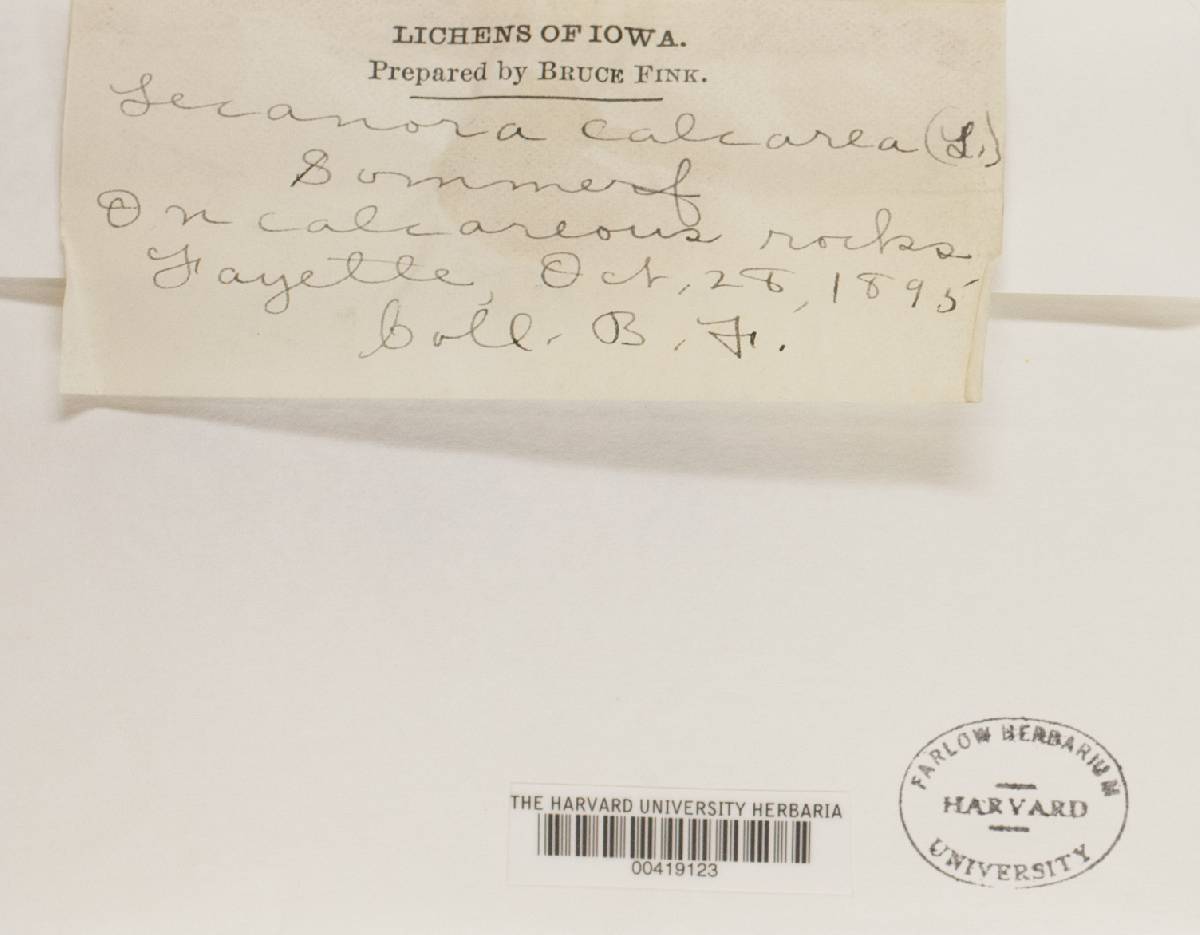 LICHENS OF IOWA.
Prepared by BRUCE FINK.
Lecanora calcarea (L.)
Sommerf
On calcareous rocks
Fayette, Oct. 28, 1895
Coll. B. F.
THE HARVARD UNIVERSITY HERBARIA
00419123
FARLOW HERBARIUM
HARVARD
UNIVERSITY